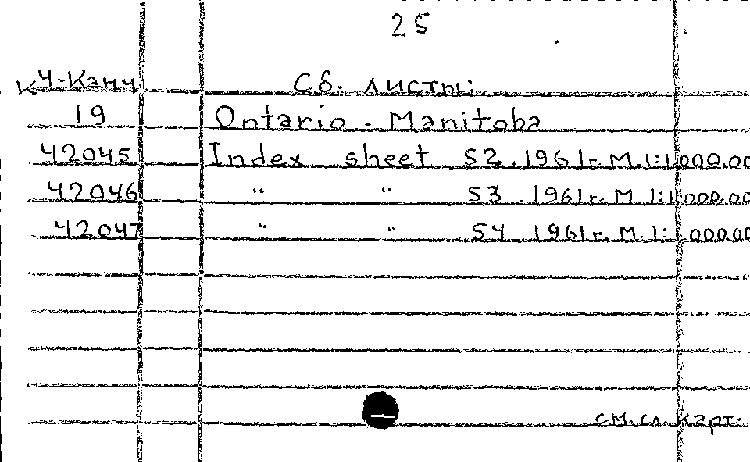 25
К4-Кан4 Сб. листы:
19 Ontario - Manitoba
42045 Index sheet S2. 1961г. М. 1:1.000.00
42046 " " S3. 1961г. М 1:1.000.00
42047 " " S4 1961г. М. 1:1.000.00
см. сл. карт.